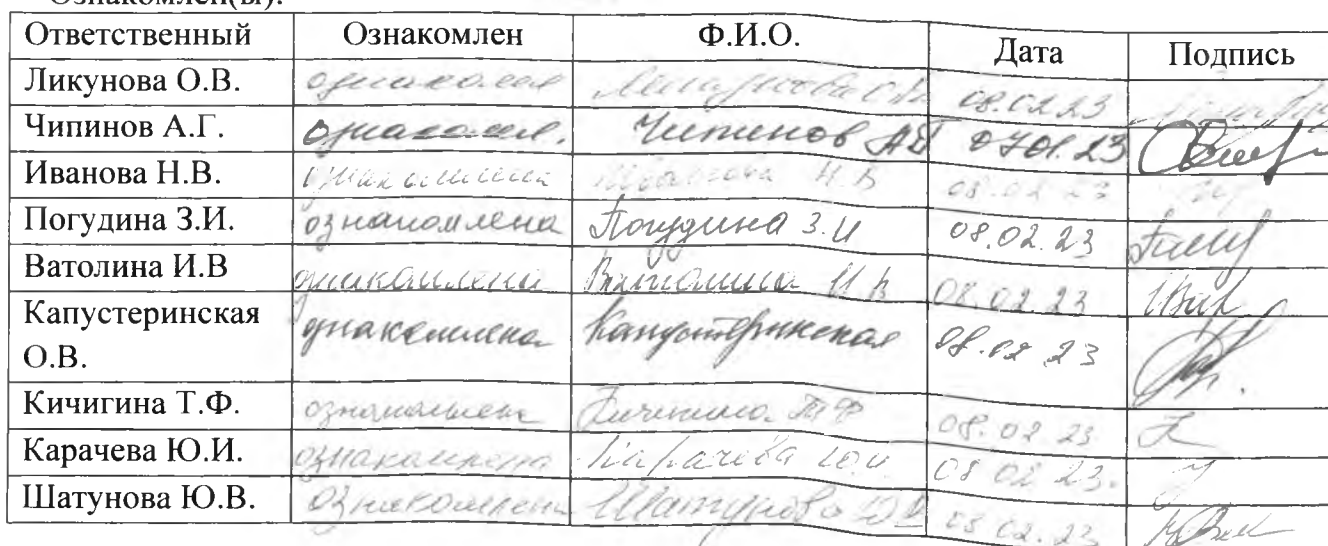 Ознакомлен(ы):
Ответственный Ознакомлен Ф.И.О. Дата Подпись
Ликунова О.В. ознакомлен 08.02.23
Чипинов А.Г. ознакомлен. Чипинов АГ 0701.23
Иванова Н.В. ознакомлена Иванова Н.В 08.02.23
Погудина З.И. ознакомлена Погудина З.И 08.02.23
Ватолина И.В ознакомлена Ватолина И.В 08.02.23
Капустеринская О.В. ознакомлена Капустеринская 08.02.23
Кичигина Т.Ф. ознакомлена Кичигина ТФ 08.02.23
Карачева Ю.И. ознакомлена Карачева Ю.И 08.02.23.
Шатунова Ю.В. ознакомлена Шатунова Ю.В 08.02.23